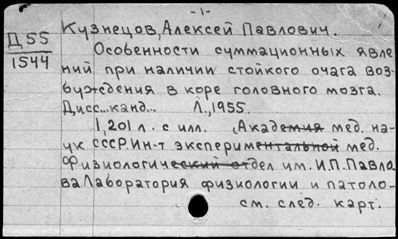 -1-
Кузнецов, Алексей Павлович.
Д 55
1544
Особенности суммационных явле
ний при наличии стойкого очага воз-
буждения в коре головного мозга.
Дисс...канд... Л., 1955.
1,201 л. с илл. (Академия мед. на-
ук СССР. Ин-т экспериментальной мед.
Физиологический отдел им. И.П. Павло
ва Лаборатория физиологии и патоло-
см. след. карт.